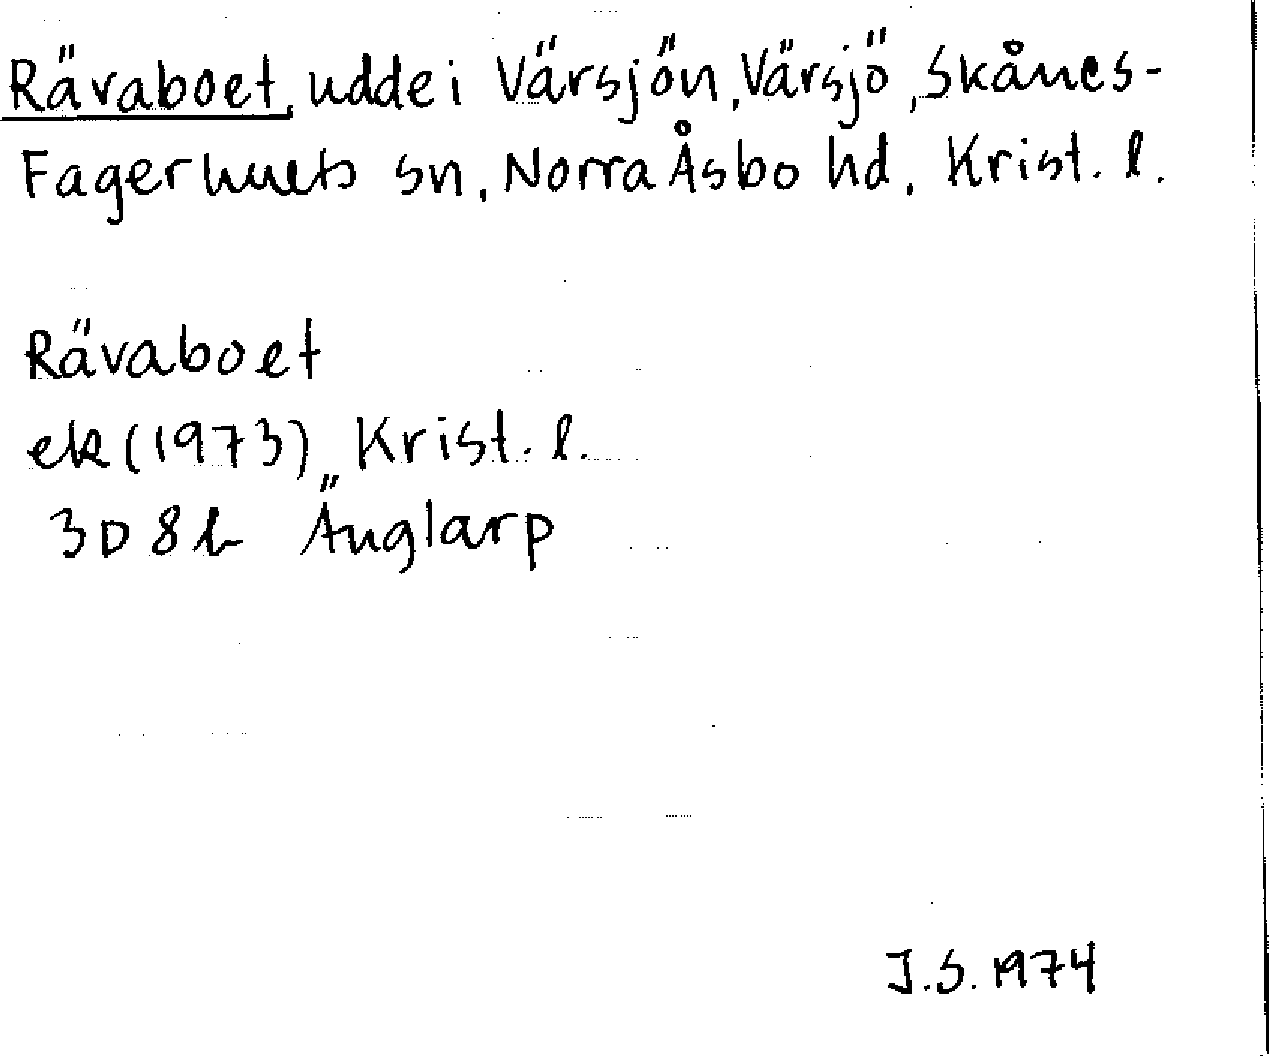 Rävaboet, udde i Värsjön, Värsjö, Skånes-
Fagerhults sn, Norra Åsbo hd, Krist. l.
Rävaboet
ek (1973), Krist. l.
3D 8b Änglarp
J.S. 1974